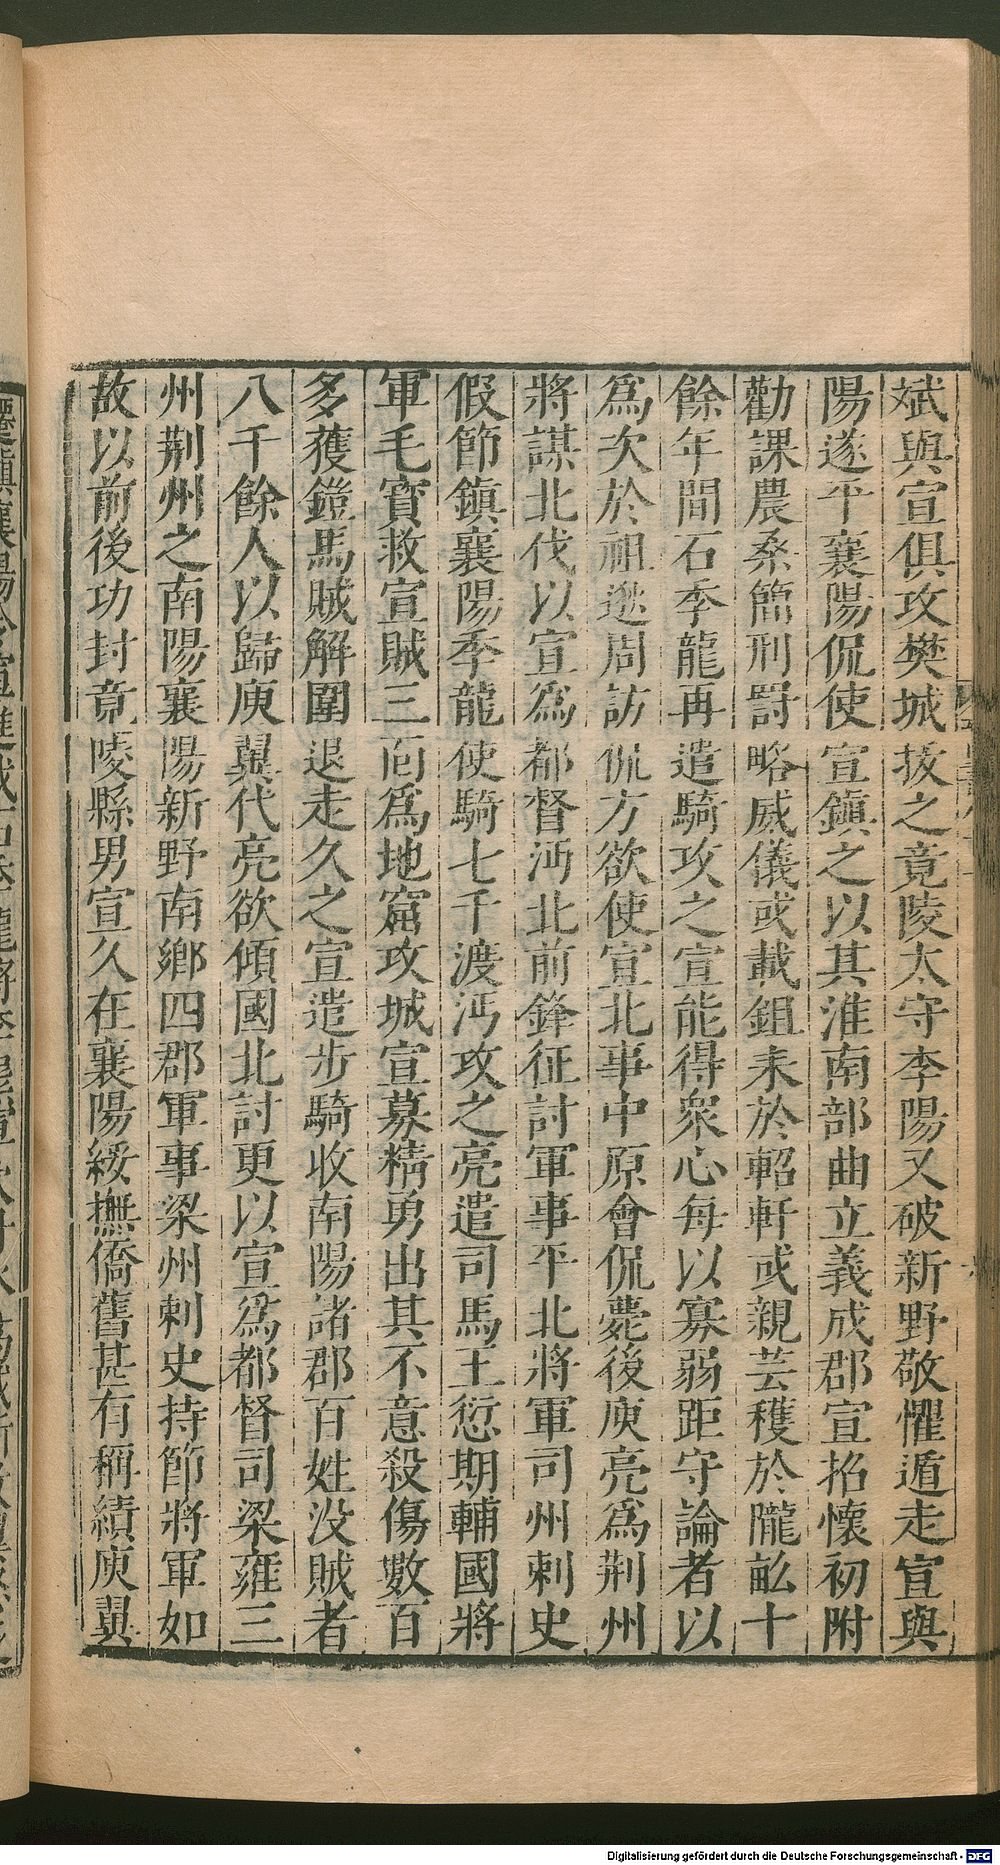 斌與宣俱攻樊城拔之竟陵太守李陽又破新野敬懼遁走宣與
陽遂平襄陽侃使宣鎮之以其淮南部曲立義成郡宣招懷初附
勸課農桑簡刑罰略威儀或載鉏耒於軺軒或親芸穫於隴畝十
餘年間石季龍再遣騎攻之宣能得衆心每以寡弱距守論者以
爲次於祖逖周訪侃方欲使宣北事中原會侃薨後庾亮爲荆州
將謀北伐以宣爲都督沔北前鋒征討軍事平北將軍司州刺史
假節鎮襄陽季龍使騎七千渡沔攻之亮遣司馬王愆期輔國將
軍毛寳救宣賊三面爲地窟攻城宣募精勇出其不意殺傷數百
多獲鎧馬賊解圍退走久之宣遣步騎收南陽諸郡百姓没賊者
八千餘人以歸庾翼代亮欲傾國北討更以宣爲都督司梁雍三
州荆州之南陽襄陽新野南鄉四郡軍事梁州刺史持節將軍如
故以前後功封竟陵縣男宣久在襄陽綏撫僑舊甚有稱績庾翼
Digitalisierung gefördert durch die Deutsche Forschungsgemeinschaft - DFG